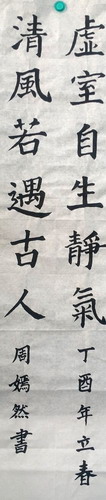 虛室自生靜氣
丁酉年立春
清風若遇古人
周嫣然書